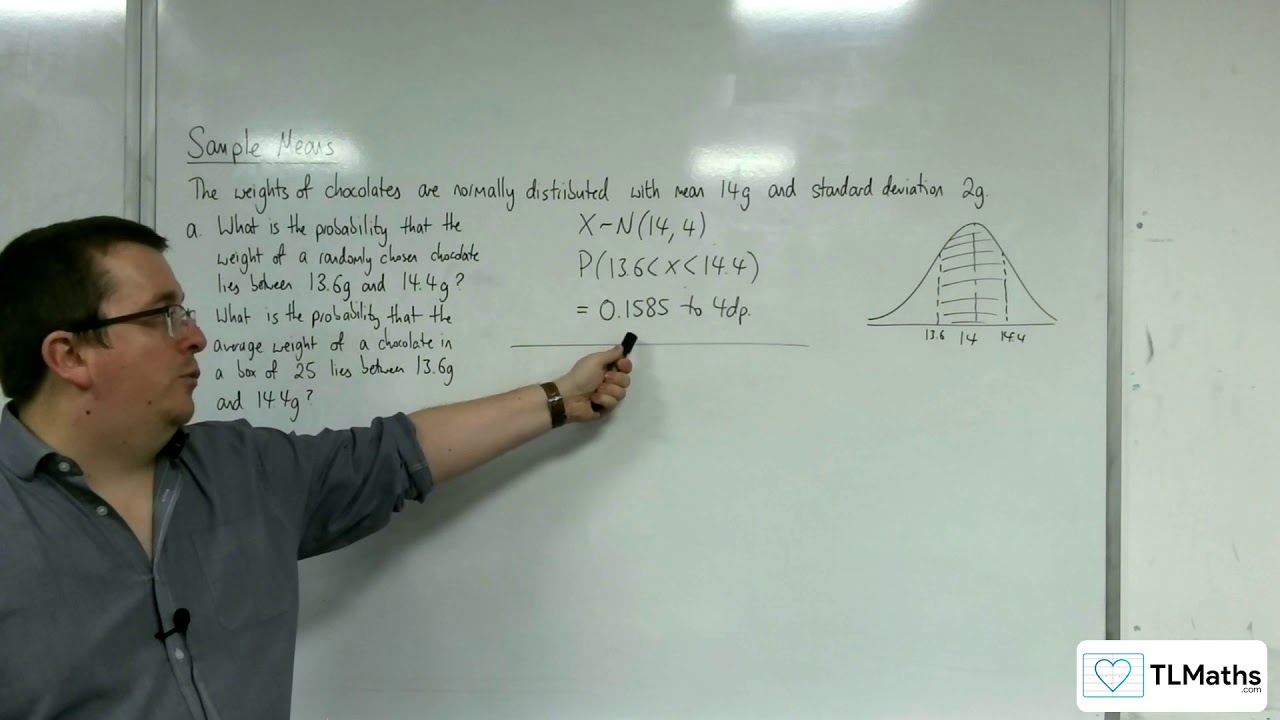 Sample Means
The weights of chocolates are normally distributed with mean 14g and standard deviation 2g.
a. What is the probability that the
weight of a randomly chosen chocolate
lies between 13.6g and 14.4g?
What is the probability that the
average weight of a chocolate in
a box of 25 lies between 13.6g
and 14.4g?
X~N(14,4)
P(13.6<X<14.4)
= 0.1585 to 4dp.
13.6 14 14.4
TLMaths
.com